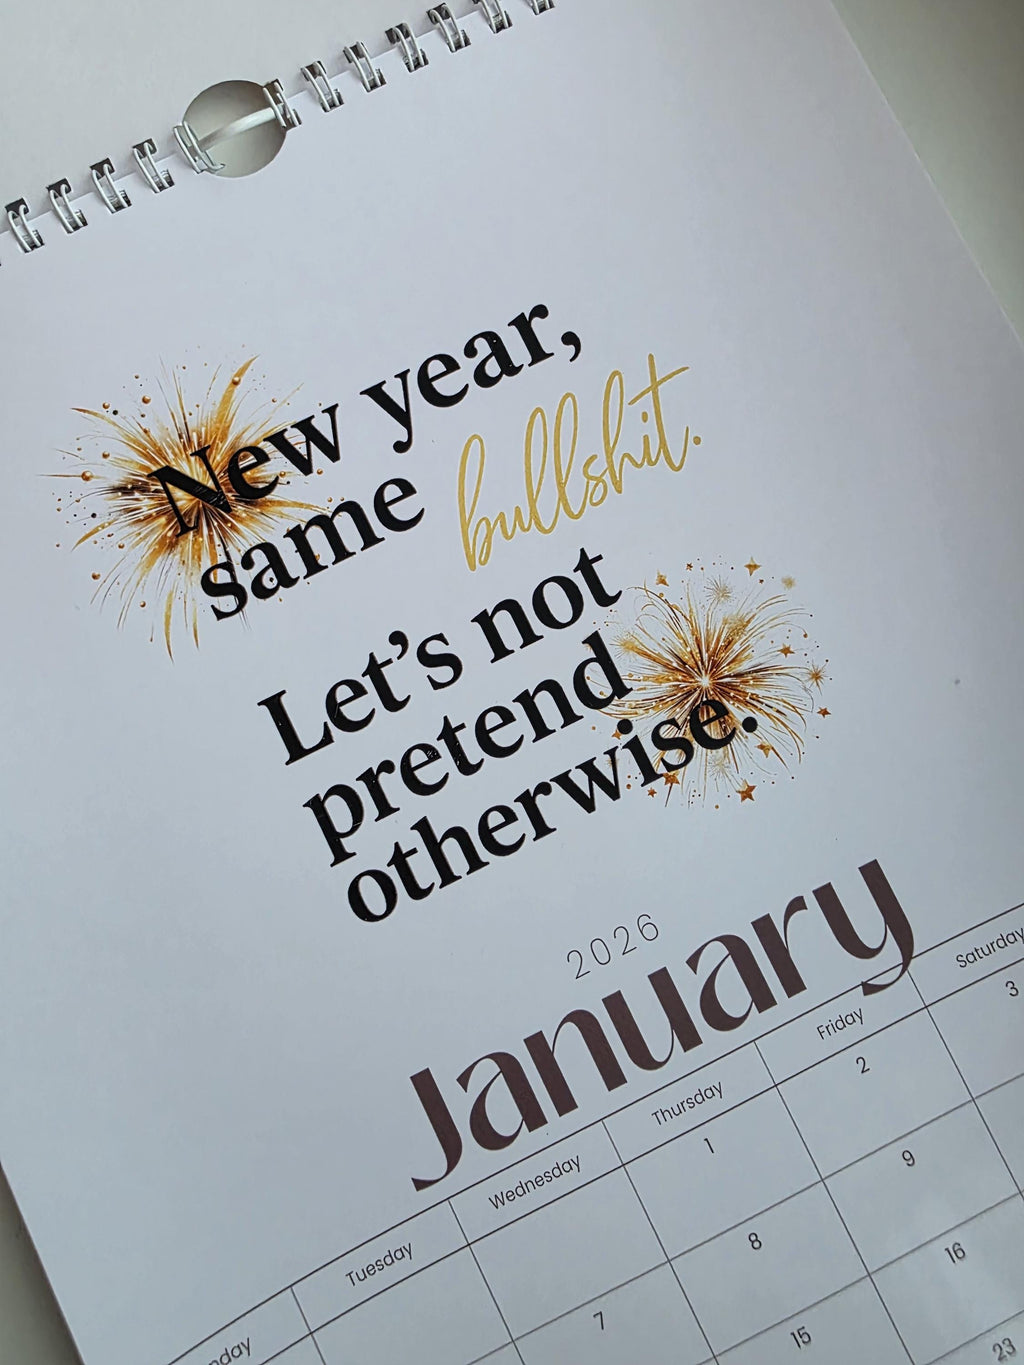 New year,
same bullshit.
Let's not
pretend
otherwise.
2026
January
Tuesday Wednesday Thursday Friday Saturday
1 2 3
7 8 9
15 16
23